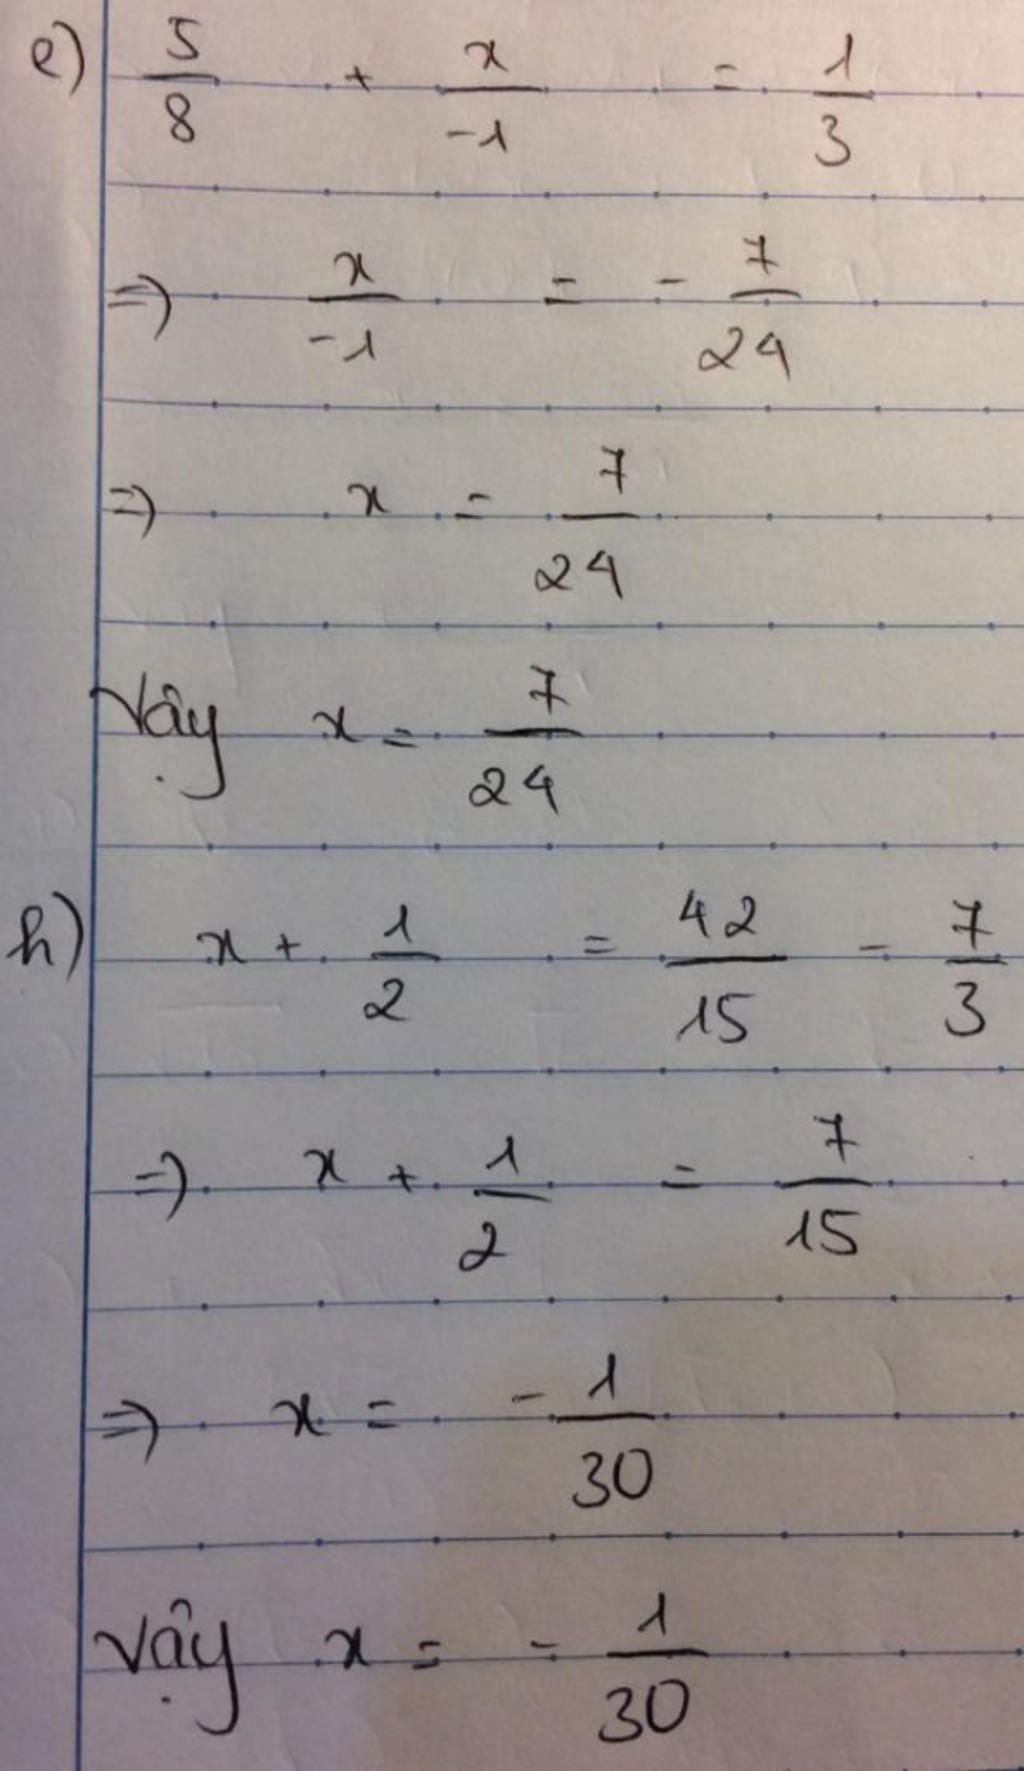 e) 5/8 + x/-1 = 1/3
=> x/-1 = - 7/24
=> x = 7/24
Vậy x = 7/24
h) x + 1/2 = 42/15 - 7/3
=> x + 1/2 = 7/15
=> x = - 1/30
Vậy x = - 1/30